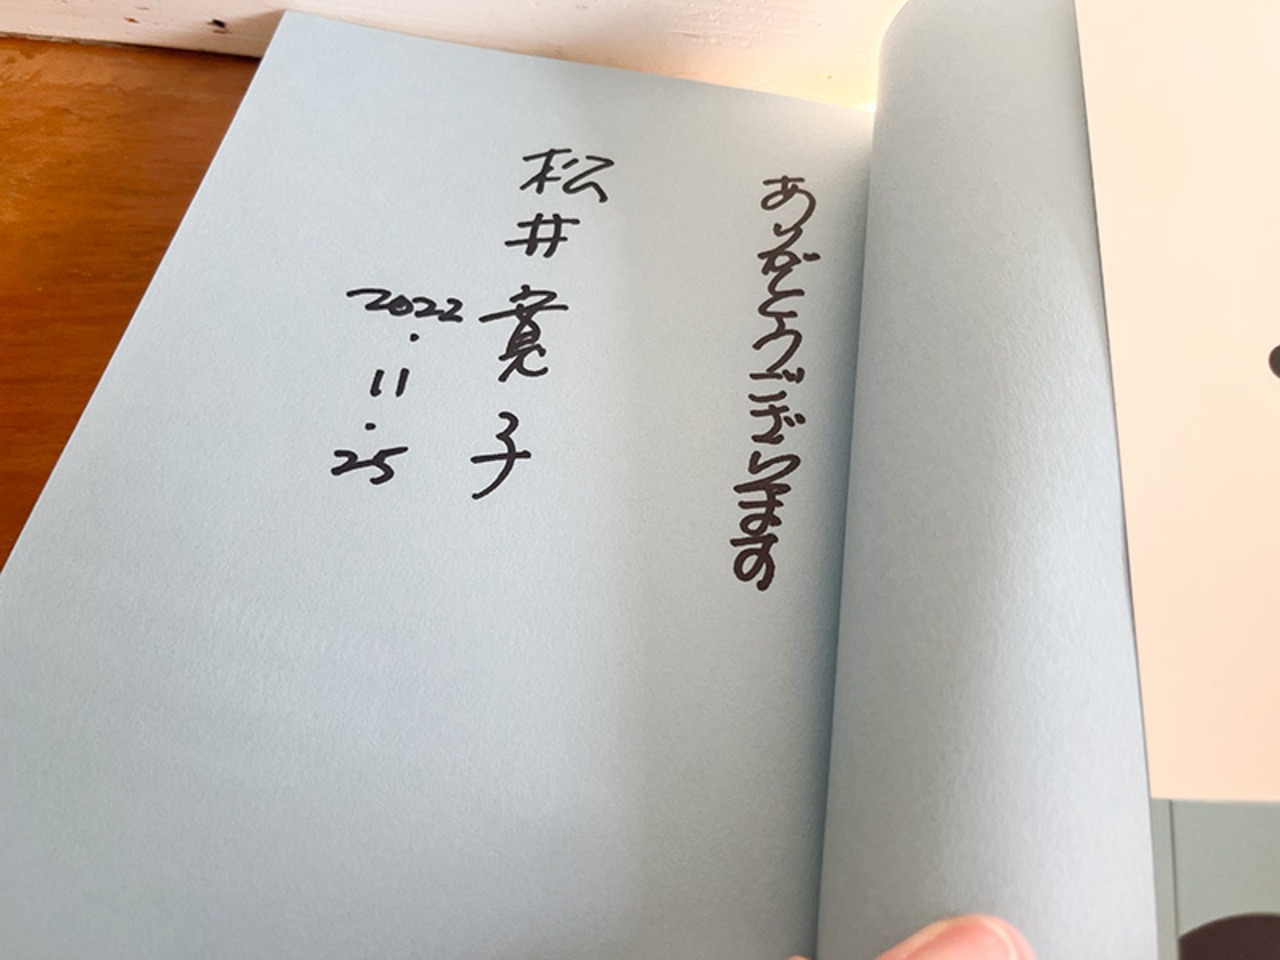 ありがとうございます
松井寛子
2022.11.25